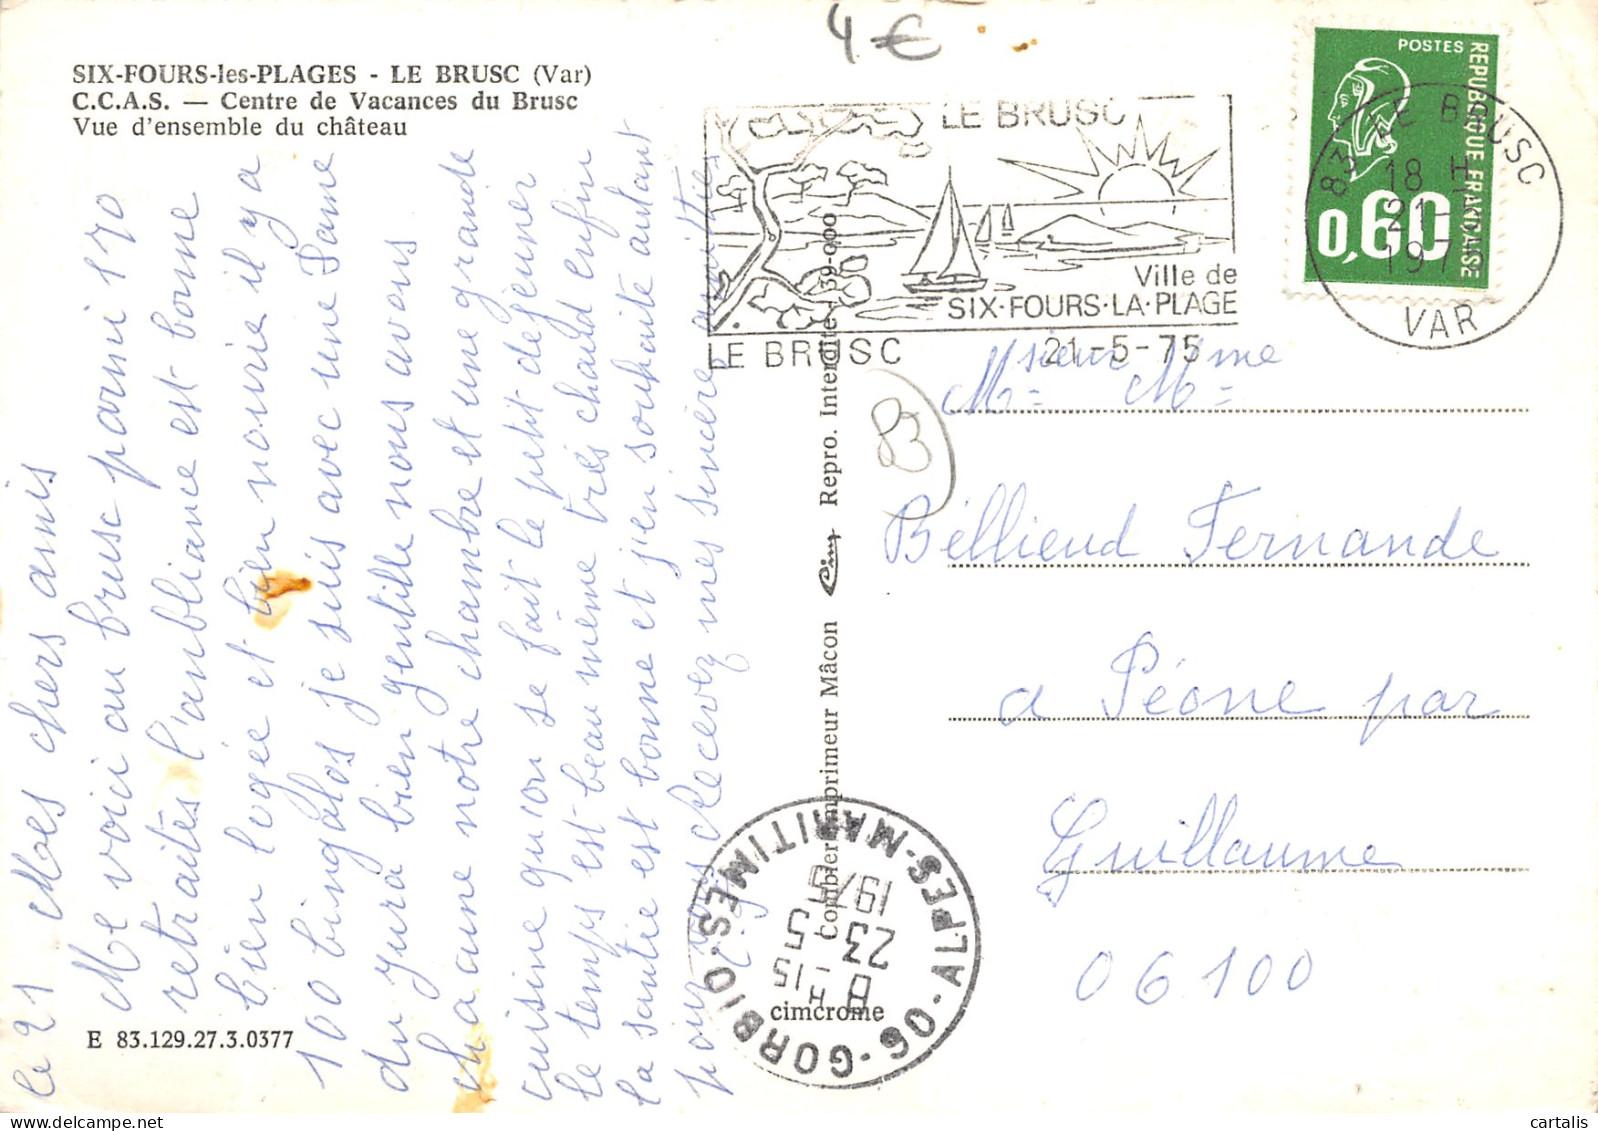 4 €
SIX-FOURS-les-PLAGES - LE BRUSC (Var)
C.C.A.S. — Centre de Vacances du Brusc
Vue d'ensemble du château
le 21 Moes chers amis
Me voici au brusc parmi 170
retraités l'anbliance est bonne
bien logée et bien nourrie il y a
100 bingalos je suis avec une Dame
du jura bien gentille nous avons
chacune notre chambre et une grande
cuisine qu'on se fait le petit déjeuner
le temps est beau même très chaud enfin
la santée est bonne et j'en souhaite autant
pour vous Recevez mes sincère amitiés
E 83.129.27.3.0377
Combier imprimeur Mâcon
Cim
Repro. Interdite - 39-000
cimcrome
LE BRUSC
Ville de
SIX·FOURS·LA·PLAGE
LE BRUSC
21-5-75
POSTES
REPUBLIQUE FRANÇAISE
0,60
83 LE BRUSC
18 H
21-
197
VAR
83
Msieur Mme
Béllieud Fernande
a Péone par
Guillaume
06100
06-GORBIO
ALPES-MARITIMES
8 H -15
23 -5
1975
cartalis